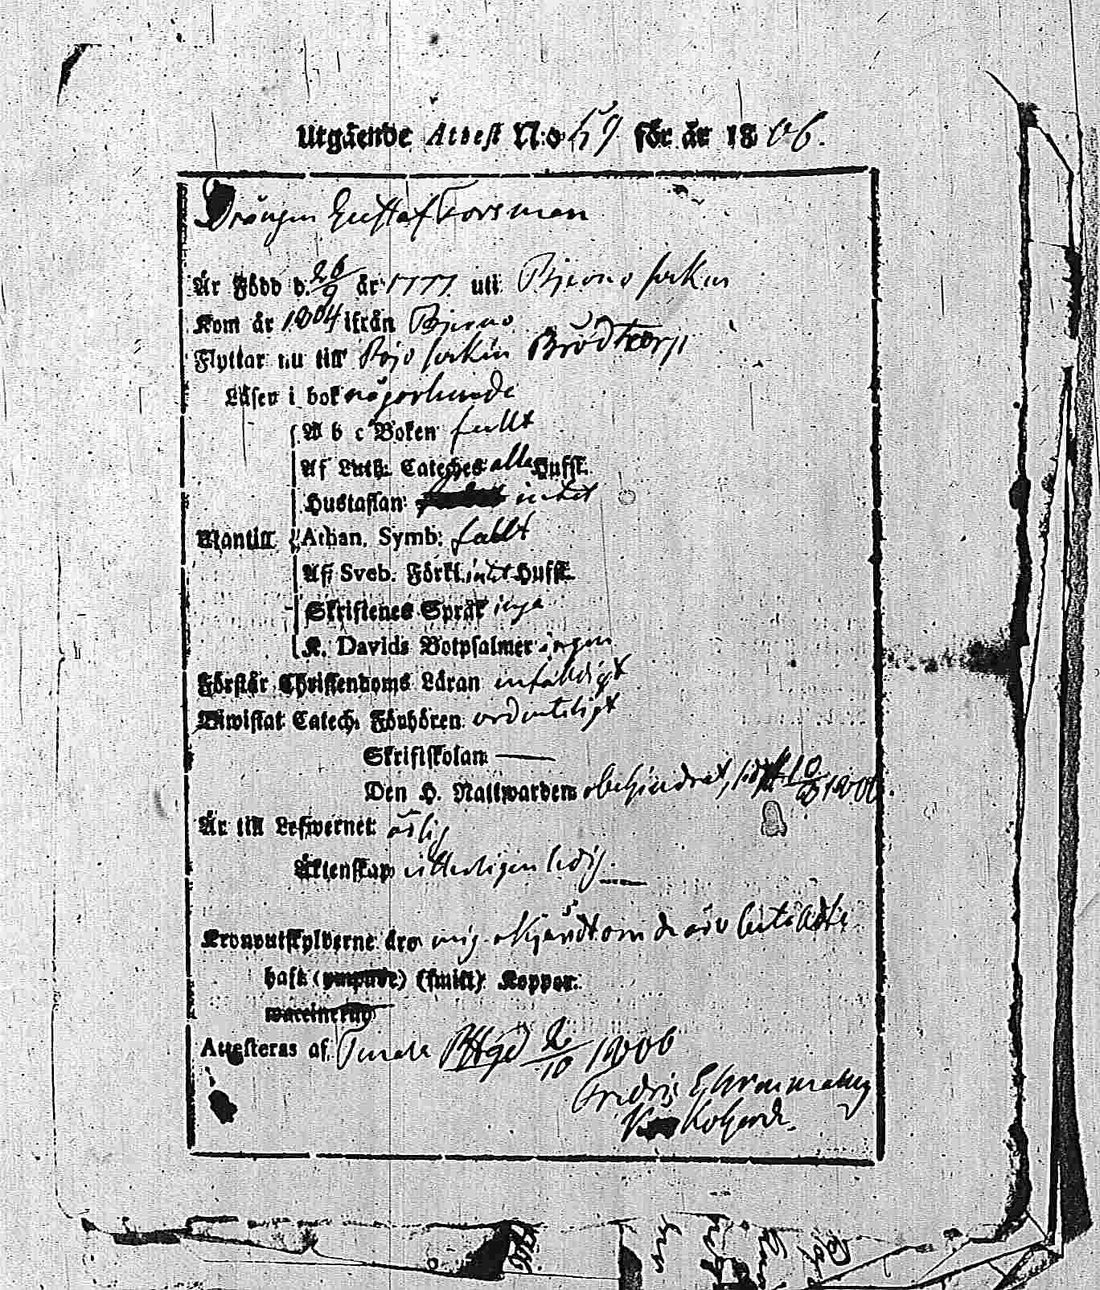 Utgående Attest N:o 59 för år 1806.
Drängen Gustaf Forsman
Är Född d. 26/9 år 1777 uti Bjerno sockn
Kom år 1804 ifrån Bjerno
Flyttar nu till Pojo sockn Brödtorp
Läser i bok någorlunda
A b c Boken fullt
Af Luth. Cateches alla Hufst.
Hustaflan intet
Mantill Athan. Symb: fullt
Af Sveb. Förkl. intet Hufst.
Skriftenes Språk inga
K. Davids Botpsalmer ingen
Förstår Christendoms Läran enfaldigt
Biwistat Catech. Förhören ordenteligt
Skriftskolan —
Den H. Nattwarden obehindrat, sidst 10/8 1806.
Är till Lefwernet ärlig
Äktenskap vitterligen ledig.
Kronoutskylderne äro mig okjändt om de äro betalde
haft (smitt) Koppor.
Attesteras af Tenala 2/10 1806